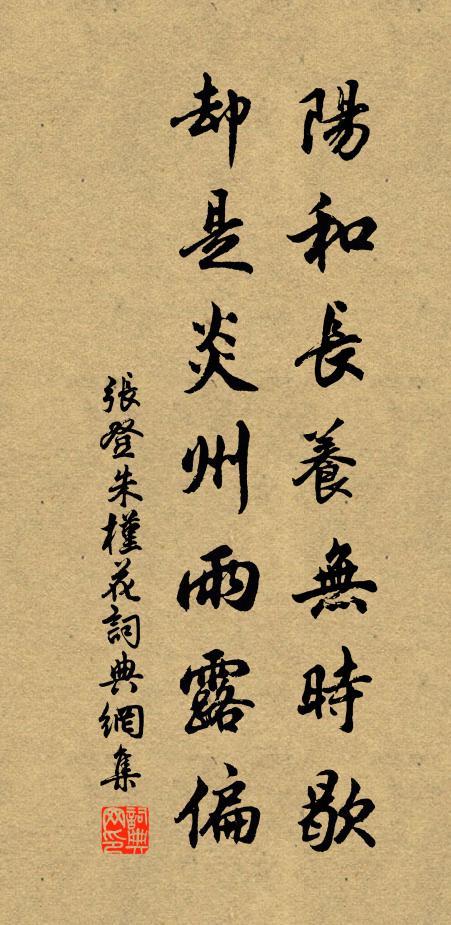 陽和長養無時歇
却是炎州雨露偏
張登朱槿花詞典網集
詞典网印